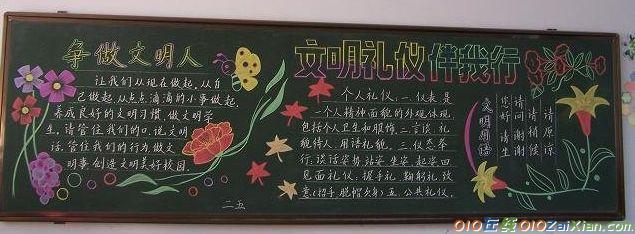 争做文明人
让我们从现在做起,从自
己做起,从点点滴滴的小事做起,
养成良好的文明习惯,做文明学
生,请管住我们的口,说文明
话,管住我们的行为,做文
明事,创造文明美好校园。
二五
文明礼仪伴我行
个人礼仪:一、仪表是
一个人精神面貌的外观体现,
包括个人卫生和服饰。二、言谈礼
貌待人,用语礼貌。三、仪态举
行:谈话姿势站姿坐姿起姿四
见面礼仪:握手礼 鞠躬礼 致
意(招手 脱帽欠身)五、公共礼仪。
文明用语
您好 请坐
请问 谢谢
请稍候
请原谅
010在线010ZaiXian.com